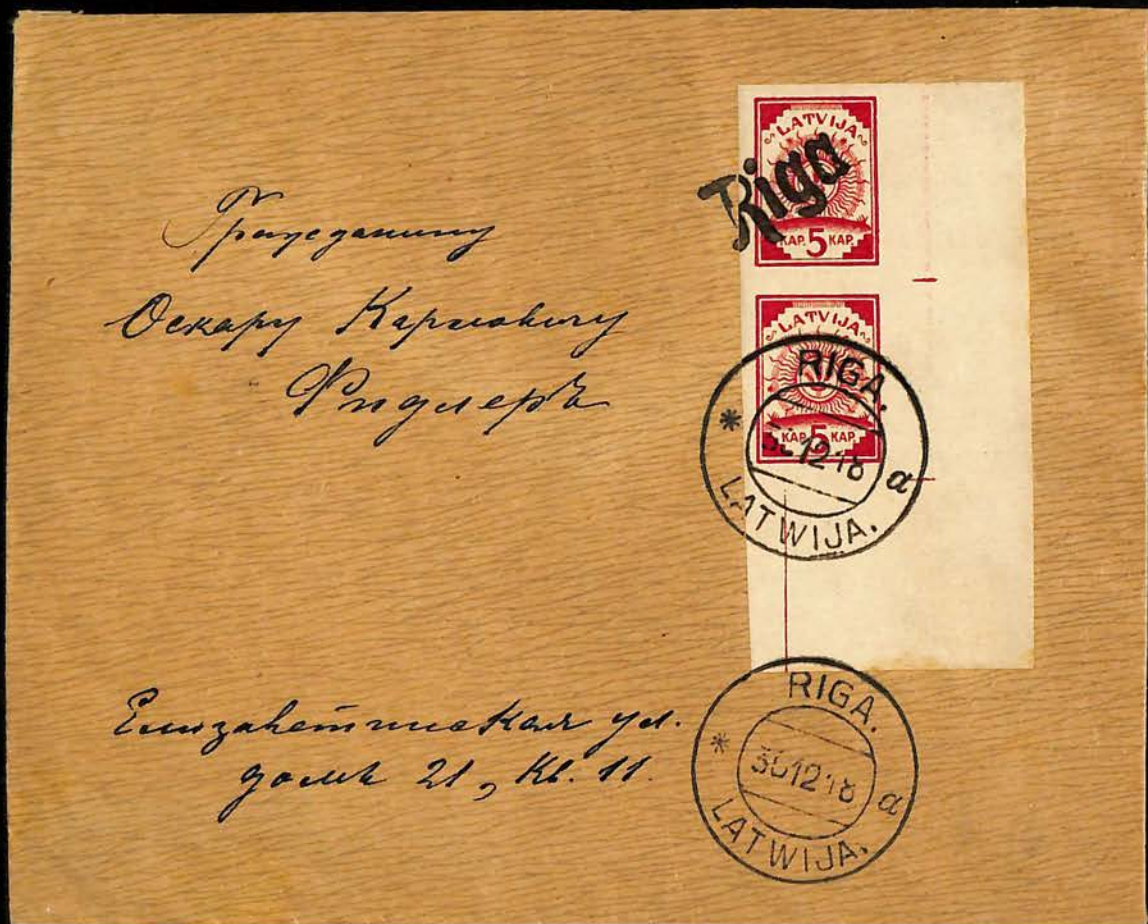 Гражданину
Оскару Карловичу
Фидлеръ
Елизаветинская ул.
домъ 21, Кв. 11.
LATVIJA
Riga
KAP. 5 KAP.
LATVIJA
KAP. 5 KAP.
RIGA.
12 18 a
LATWIJA.
RIGA.
12 18 a
LATWIJA.